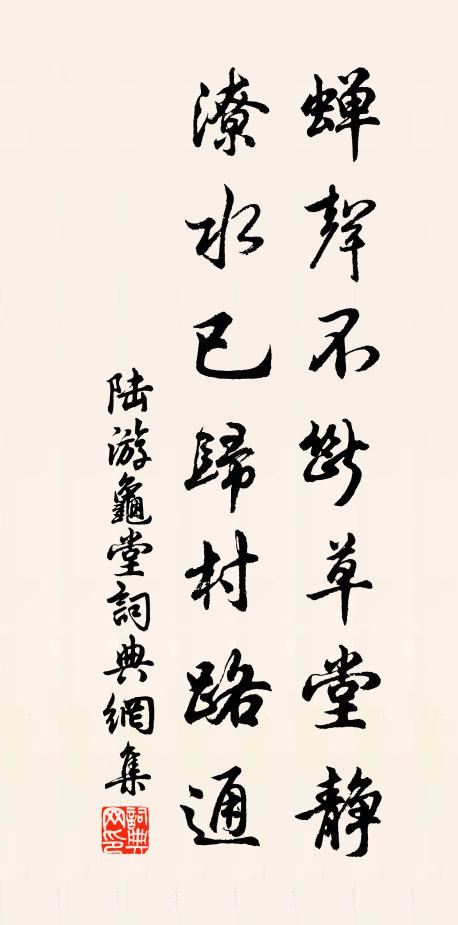 蝉聲不斷草堂静
潦水已歸村路通
陆游龜堂詞典網集
詞典网印